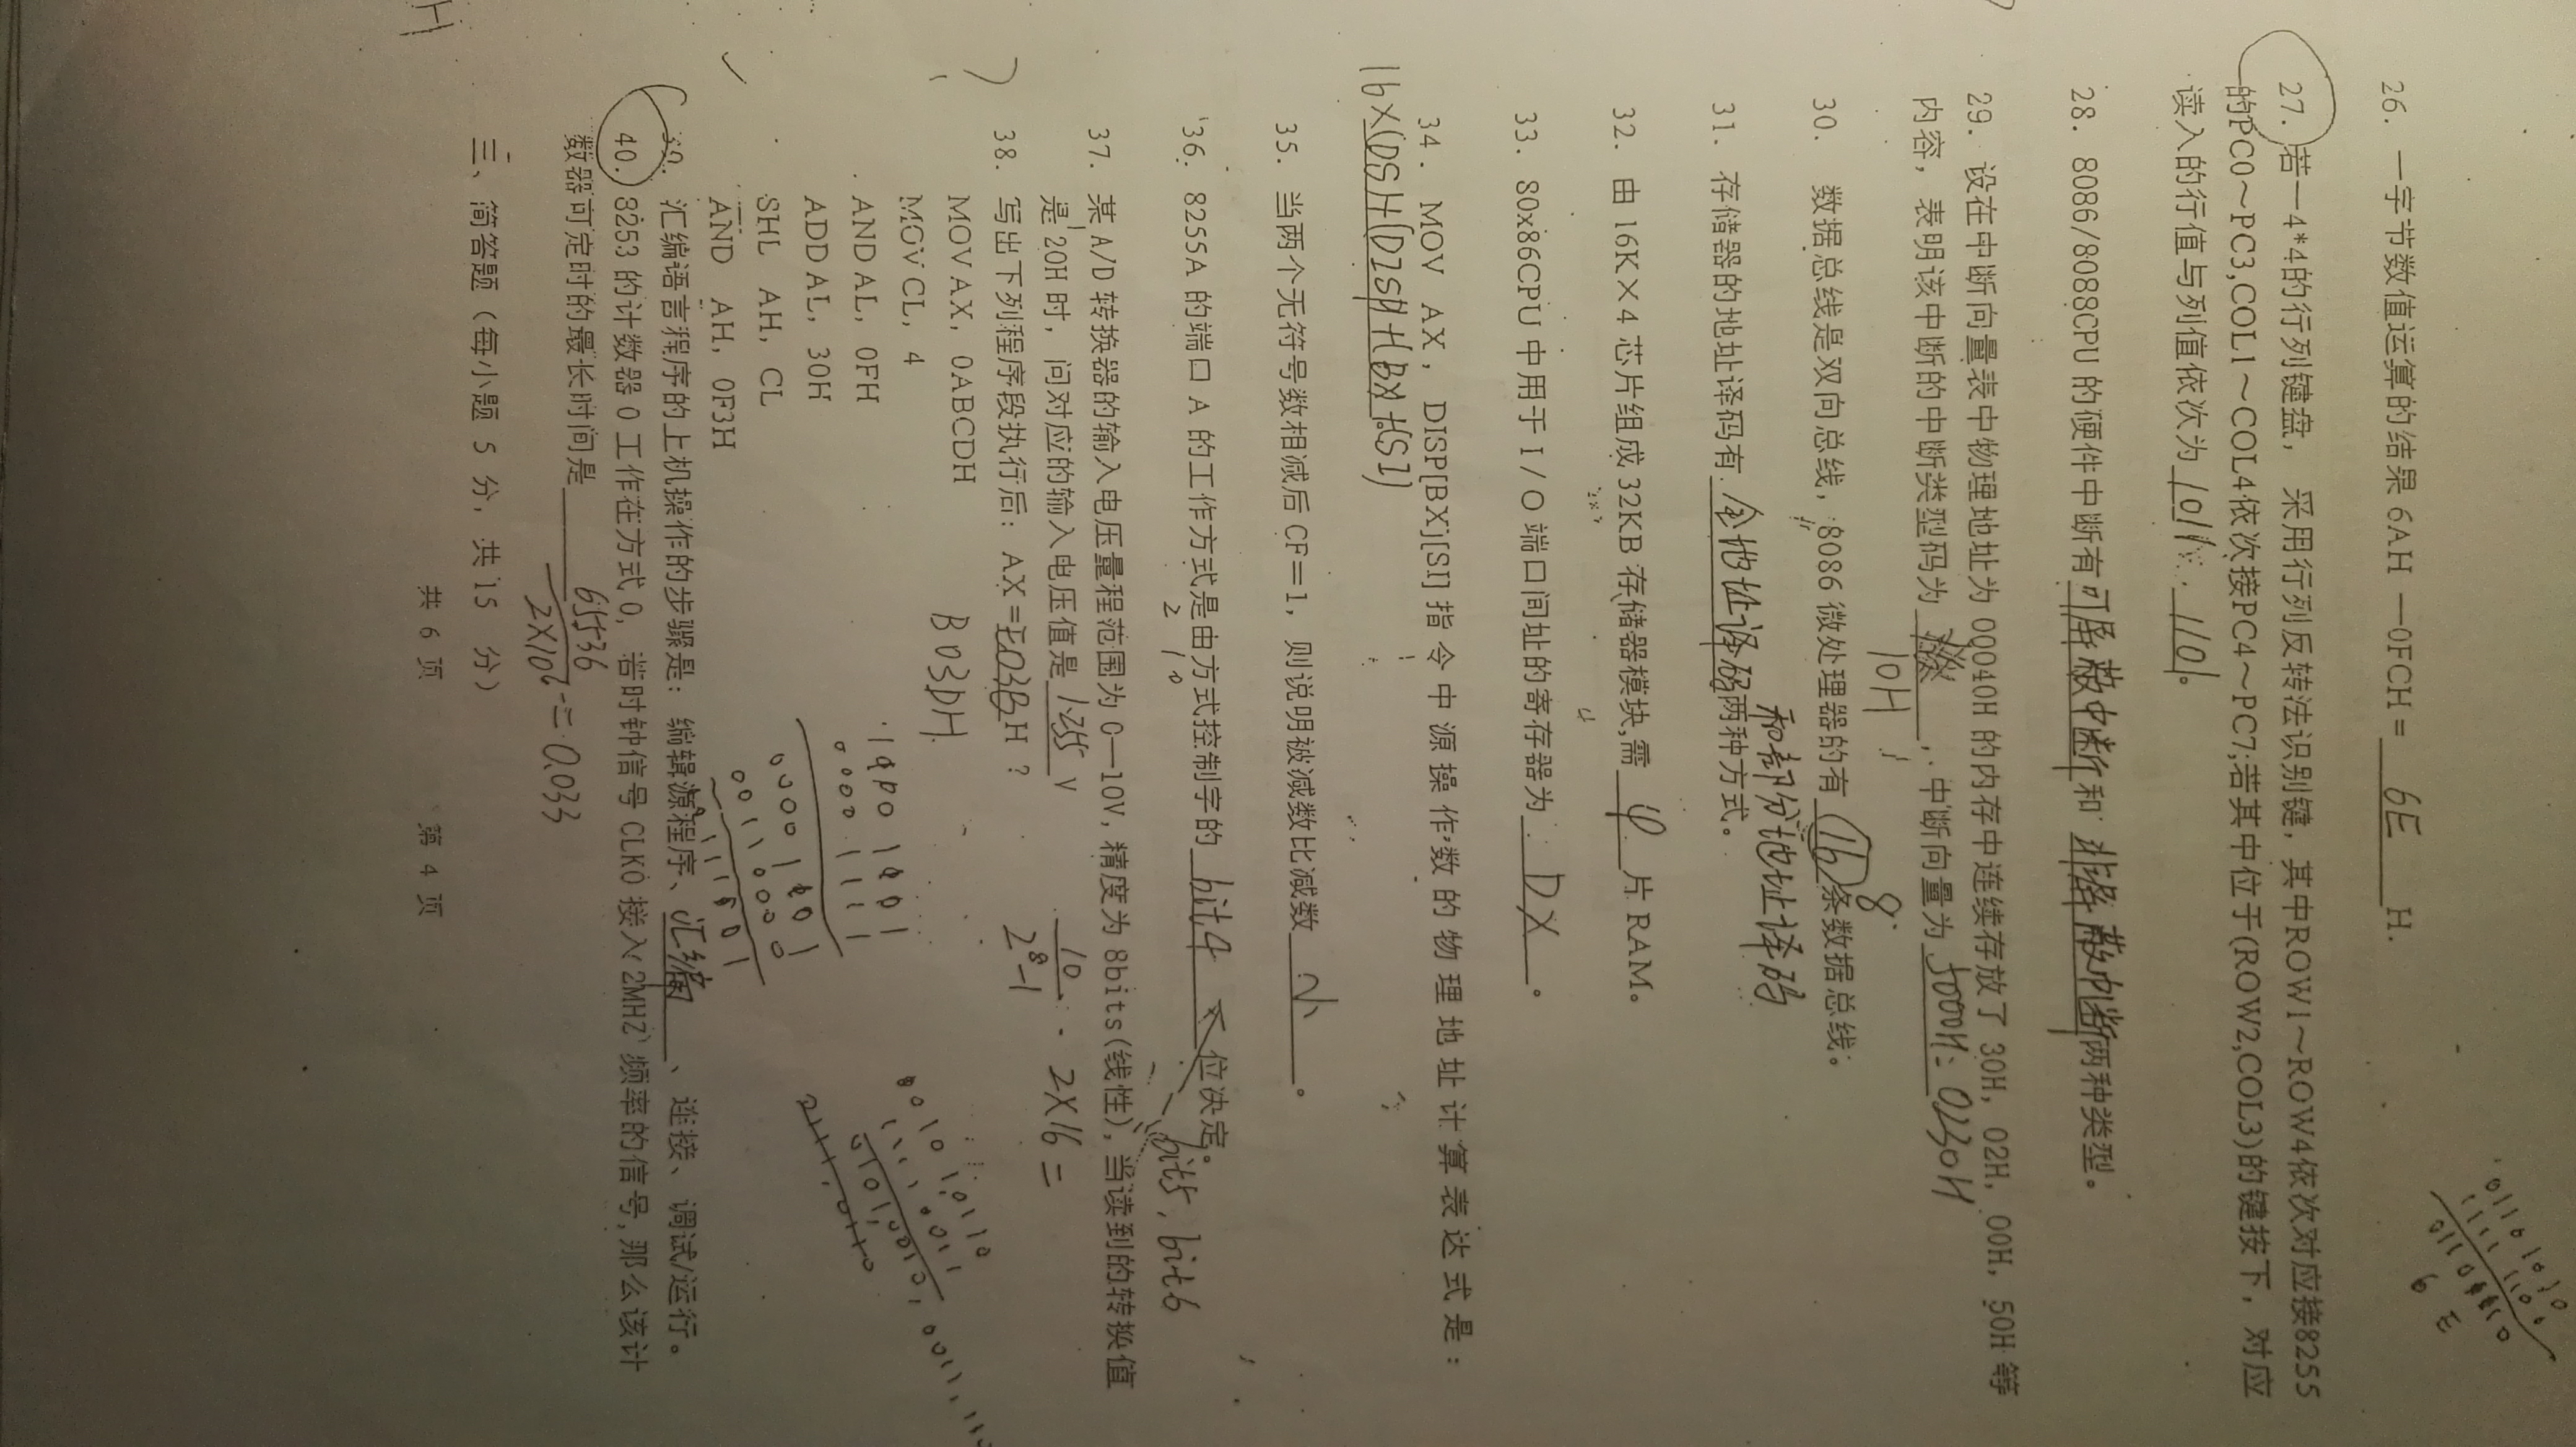 26. 一字节数值运算的结果 6AH —0FCH = 6E H.
0110 1010
6 E
27. 若一4*4的行列键盘，采用行列反转法识别键，其中ROW1～ROW4依次对应接8255
的PC0～PC3,COL1～COL4依次接PC4～PC7;若其中位于(ROW2,COL3)的键按下，对应
读入的行值与列值依次为 1011 . 1101。
28. 8086/8088CPU 的硬件中断有 可屏蔽中断 和 非屏蔽中断 两种类型。
29. 设在中断向量表中物理地址为 00040H 的内存中连续存放了 30H，02H，00H，50H 等
内容，表明该中断的中断类型码为 ，中断向量为 5000H：0230H
10H
30. 数据总线是双向总线，8086 微处理器的有 16 条数据总线。
8
31. 存储器的地址译码有 全地址译码 两种方式。
和部分地址译码
32. 由 16K×4 芯片组成 32KB 存储器模块,需 4 片 RAM。
33. 80x86CPU 中用于 I/O 端口间址的寄存器为 DX 。
34. MOV AX, DISP[BX][SI] 指令中源操作数的物理地址计算表达式是：
16×(DS)+(DISP)+(BX)+(SI)
35. 当两个无符号数相减后 CF＝1，则说明被减数比减数 小 。
36. 8255A 的端口 A 的工作方式是由方式控制字的 bit4 位决定。
bit5, bit6
37. 某 A/D 转换器的输入电压量程范围为 0—10V，精度为 8bits(线性)，当读到的转换值
是 20H 时，问对应的输入电压值是 1.255 V
10 / 2⁸-1 · 2×16 =
38. 写出下列程序段执行后：AX = H ?
B03DH
MOV AX，0ABCDH
MOV CL，4
AND AL，0FH
ADD AL，30H
SHL AH，CL
AND AH，0F3H
39. 汇编语言程序的上机操作的步骤是：编辑源程序、 汇编 、连接、调试/运行。
40. 8253 的计数器 0 工作在方式 0，若时钟信号 CLK0 接入 2MHZ 频率的信号,那么该计
数器可定时的最长时间是
65536 / 2×10⁶ = 0.033
三、简答题（每小题 5 分，共 15 分）
共 6 页 第 4 页